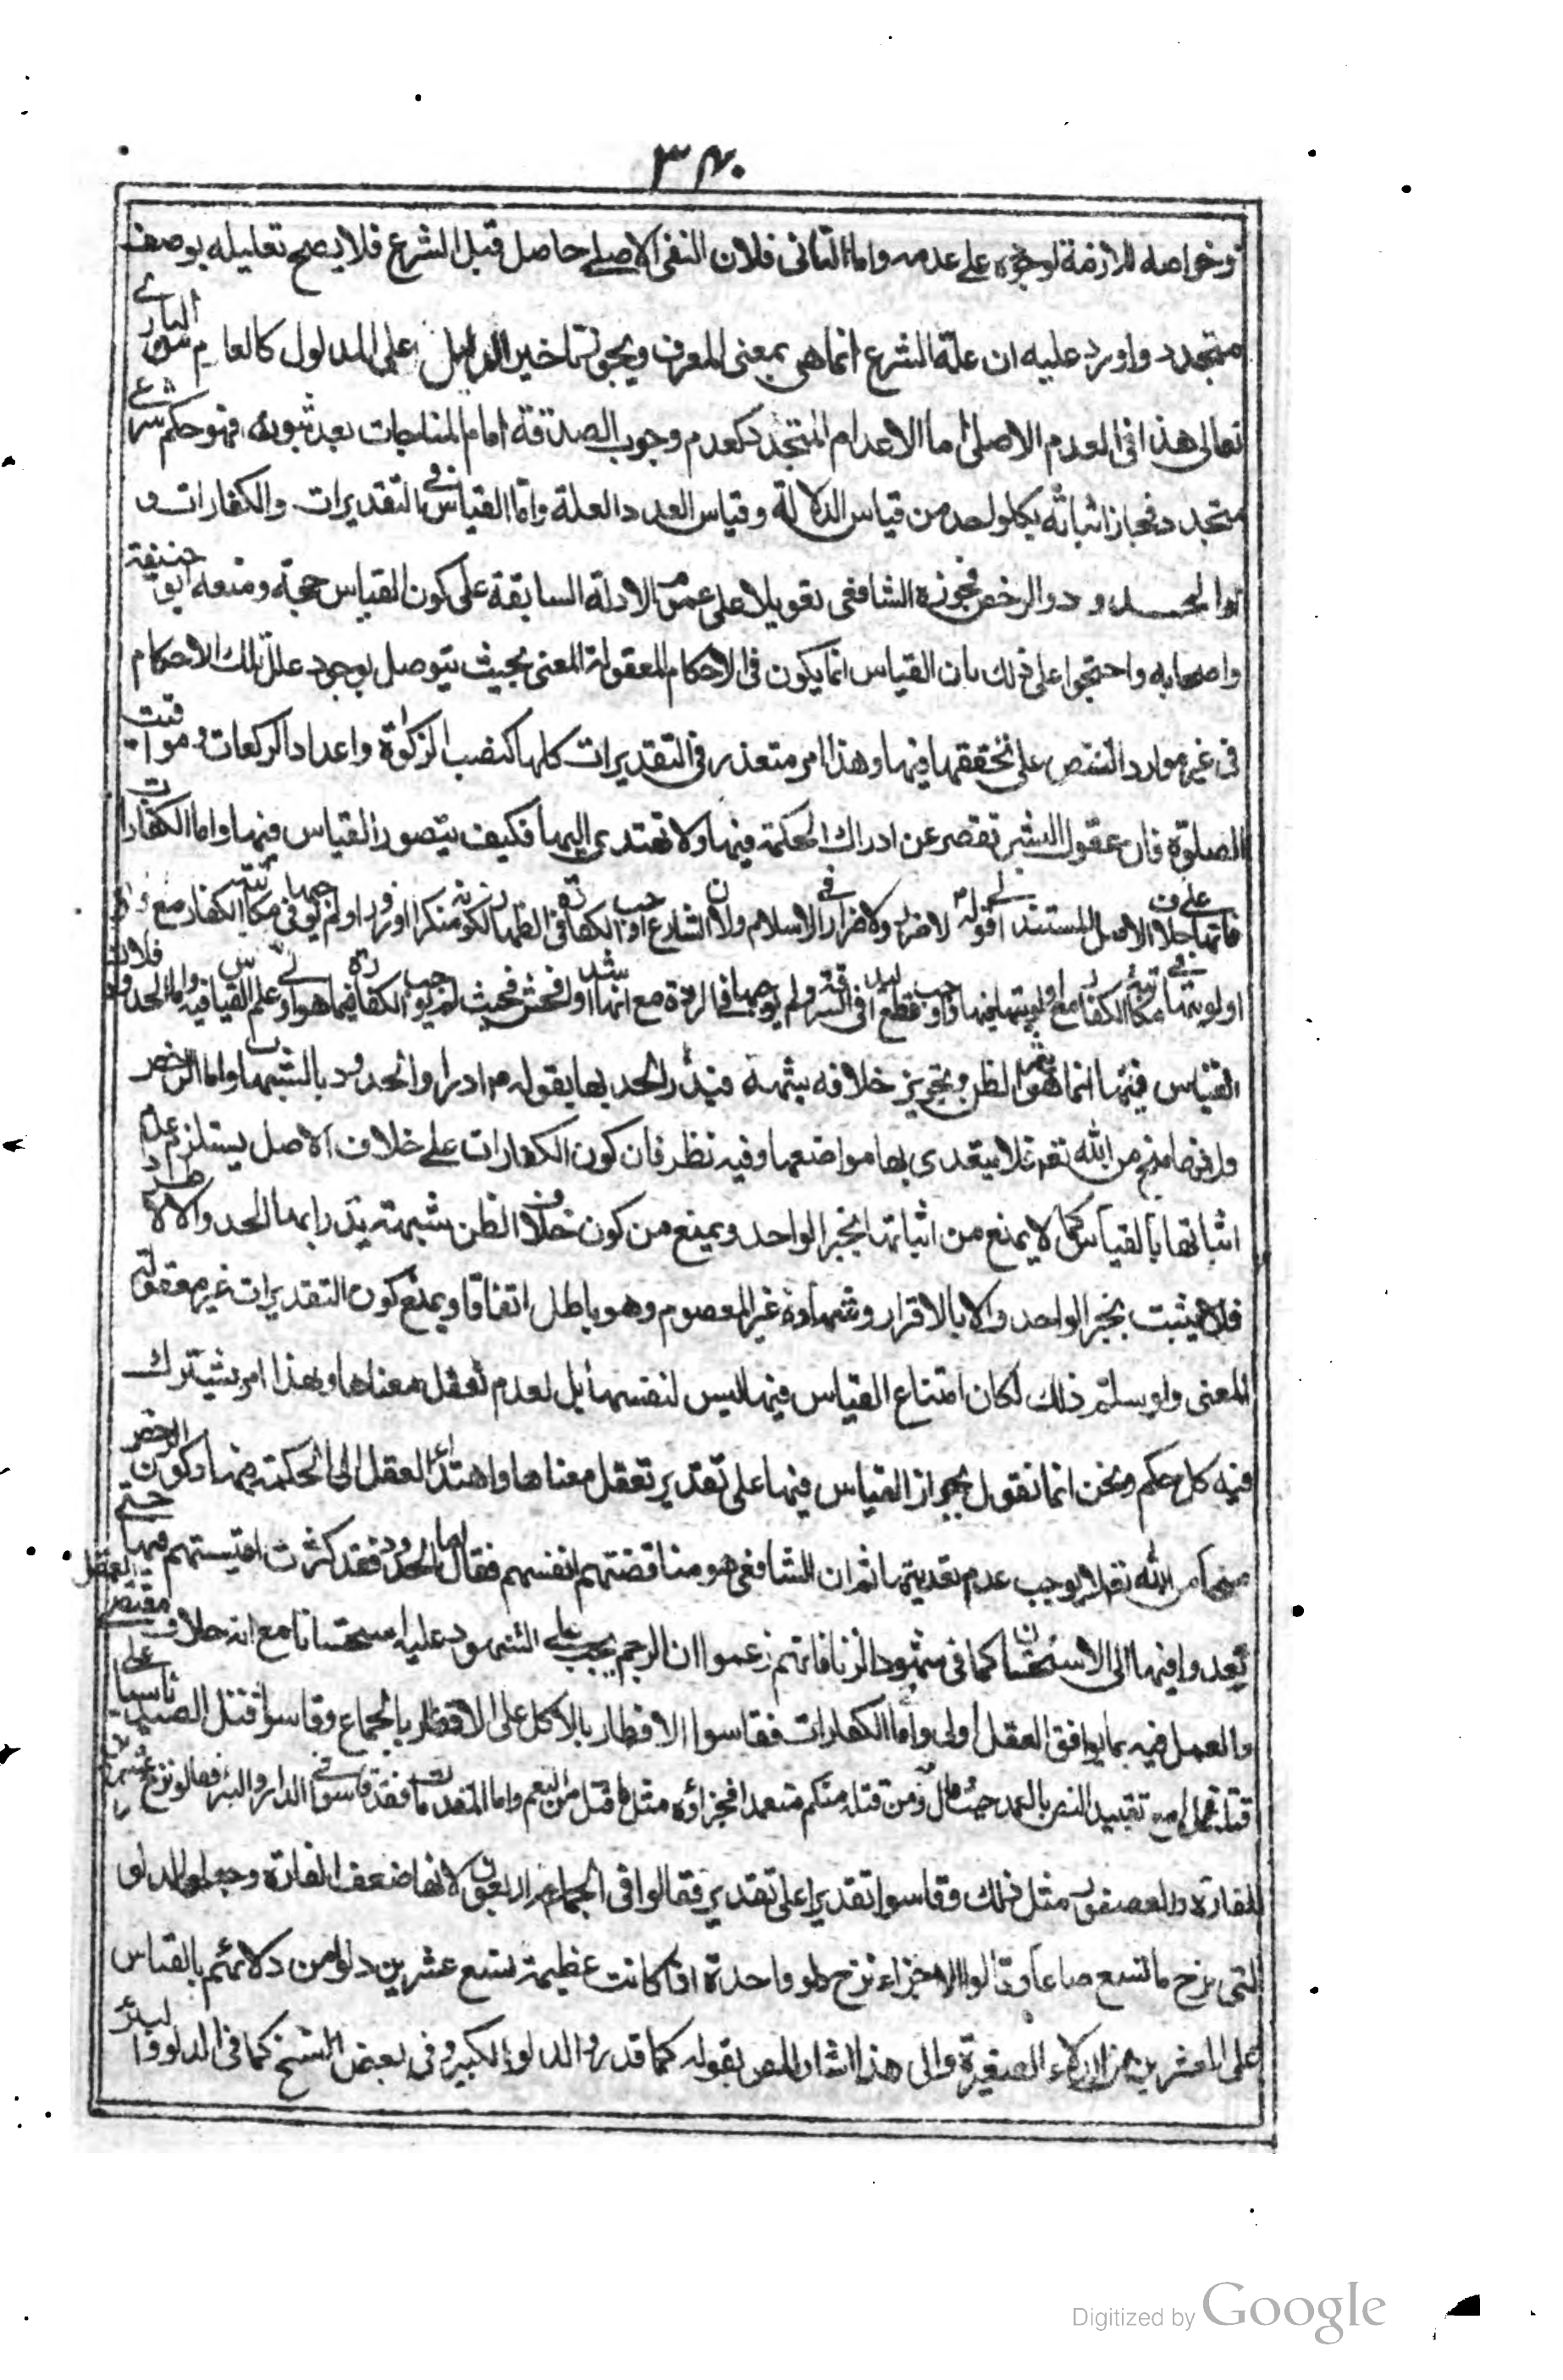 ٣٤٠
وخواصه اللازمة لوجوده على عدمه واما الثانى فلان النفى الاصلى حاصل قبل الشرع فلا يصح تعليله بوصف
متجدد واورد عليه ان علة الشرع انما هى بمعنى المعرف ويجوز تاخير الدليل على المدلول كالعالم مع البارئ
تعالى هذا فى العدم الاصلى اما الاعدام المتجدد كعدم وجوب الصدقة امام المناجات بعد ثبوته فهو حكم شرعى
متجدد فجاز اثباته بكل واحد من قياس الدلالة وقياس العلة واما القياس فى التقديرات والكفارات و
الحدود والرخص فجوزه الشافعى تعويلا على عموم الادلة السابقة على كون القياس حجة ومنعه ابو حنيفة
واصحابه واحتجوا على ذلك بان القياس انما يكون فى الاحكام المعقولة المعنى بحيث يتوصل بوجود علل تلك الاحكام
فى غير موارد النص على تحققها فيها وهذا امر متعذر فى التقديرات كلها كنصب الزكوة واعداد الركعات ومواقيت
الصلوة فان عقول البشر تقصر عن ادراك الحكمة فيها ولا تهتدى اليها فكيف يتصور القياس فيها واما الكفارات
فانها خلاف الاصل المستند الى قوله لا ضرر ولا ضرار فى الاسلام ولان الشارع اوجب الكفارة فى الظهار لكونه منكرا وزورا ولم يوجبها فى
اولويتها
القياس فيها انما هو الظن وتجويز خلافه شبهة فيدرأ الحد بها بقوله م ادرأوا الحدود بالشبهات واما الرخص
من الله تعم فلا يتعدى بها مواضعها وفيه نظر فان كون الكفارات على خلاف الاصل يستلزم عدم
اثباتها بالقياس كما لا يمنع من اثباتها بخبر الواحد ويمنع من كون خلاف الظن شبهة يدرا بها الحد والا
فلا يثبت بخبر الواحد ولا بالاقرار وشهادة غير المعصوم وهو باطل اتفاقا ويمنع كون التقديرات غير معقولة
المعنى ولو سلم ذلك لكان امتناع القياس فيها ليس لنفسها بل لعدم تعقل معناها وهذا امر يشترك
فيه كل حكم ونحن انما نقول بجواز القياس فيها على تقدير تعقل معناها واهتداء العقل الى الحكمة فيها وكون الرخص
منحا من الله تعم لا يوجب عدم تعديتها ثم ان الشافعى هو مناقضتهم انفسهم فقال اما الحدود فقد كثرت اقيستهم فيها حتى
تعدوا فيها الى الاستحسان كما فى شهود الزنا فانهم زعموا ان الرجم يجب على المشهود عليه استحسانا مع انه خلاف مقتضى العقل
والعمل فيه بما يوافق العقل اولى واما الكفارات فقاسوا الافطار بالاكل على الافطار بالجماع وقاسوا قتل الصيد ناسيا على
قتله عمدا مع تقييد النص بالعمد حيث قال ومن قتله منكم متعمدا فجزاؤه مثل ما قتل من النعم واما المقدرات فقد قاسوا فى الدلو والبئر
الفارة والعصفور مثل ذلك وقاسوا تقديرا على تقدير فقالوا فى الحمامة اربعون لانها ضعف الفارة وجعلوا الدلو
التى ينزح ما تسع صاعا وقالوا الاجزاء نزح دلو واحدة اذا كانت عظيمة تسع عشرين دلوا من دلائهم بالقياس
على العشرين من الدلاء الصغيرة والى هذا اشار المص بقوله كما قدروا الدلو الكبير وفى بعض النسخ كما فى الدلو والبئر
Digitized by Google